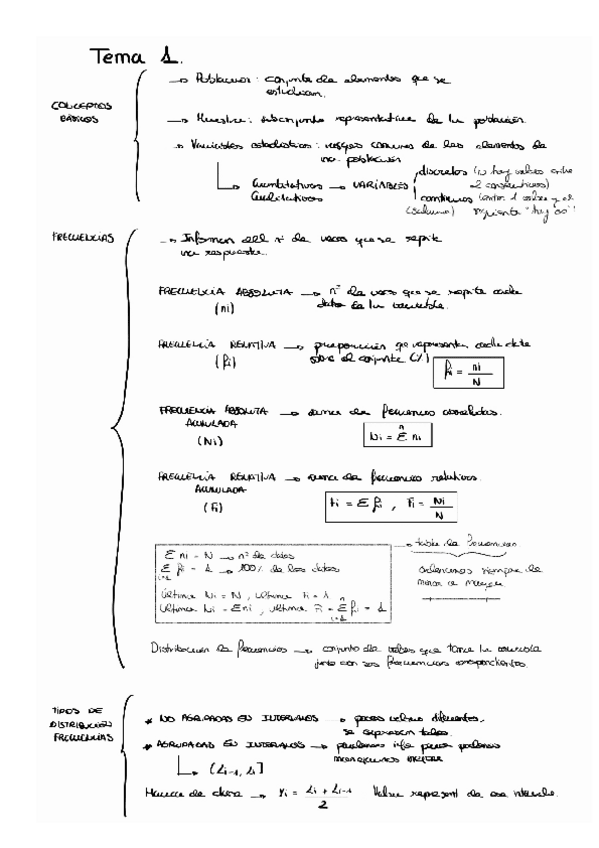 Tema 1.
CONCEPTOS BÁSICOS
→ Población: conjunto de elementos que se
estudian.
→ Muestra: subconjunto representativo de la población.
→ Variables estadísticas: rasgos comunes de los elementos de
una población
Cuantitativas → VARIABLES
Cualitativas
discretos (no hay valores entre
2 consecutivos)
continuos (entre 1 valor y el
siguiente "hay ∞")
FRECUENCIAS
→ Informan del nº de veces que se repite
una respuesta.
FRECUENCIA ABSOLUTA → nº de veces que se repite cada
(ni) dato en la variable.
FRECUENCIA RELATIVA → proporción que representa cada dato
(fi) sobre el conjunto (%)
fi = ni / N
FRECUENCIA ABSOLUTA → suma de frecuencias absolutas.
ACUMULADA
(Ni)
Ni = Σ ni
FRECUENCIA RELATIVA → suma de frecuencias relativas.
ACUMULADA
(Fi)
Fi = Σ fi , Fi = Ni / N
Σ ni = N → nº de datos
Σ fi = 1 → 100% de los datos
Última Ni = N, última Fi = 1
Última Ni = Σ ni, última Fi = Σ fi = 1
→ tabla de frecuencias
ordenamos siempre de
menor a mayor
Distribución de frecuencias → conjunto de valores que toma la variable
junto con sus frecuencias correspondientes.
TIPOS DE
DISTRIBUCIÓN
FRECUENCIAS
* NO AGRUPADAS EN INTERVALOS → pocos valores diferentes,
se expresan todos.
* AGRUPADAS EN INTERVALOS → perdemos info pero podemos
manejarnos mejor
(Li-1, Li]
Marca de clase → xi = Li + Li-1 / 2 Valor represent de ese intervalo.